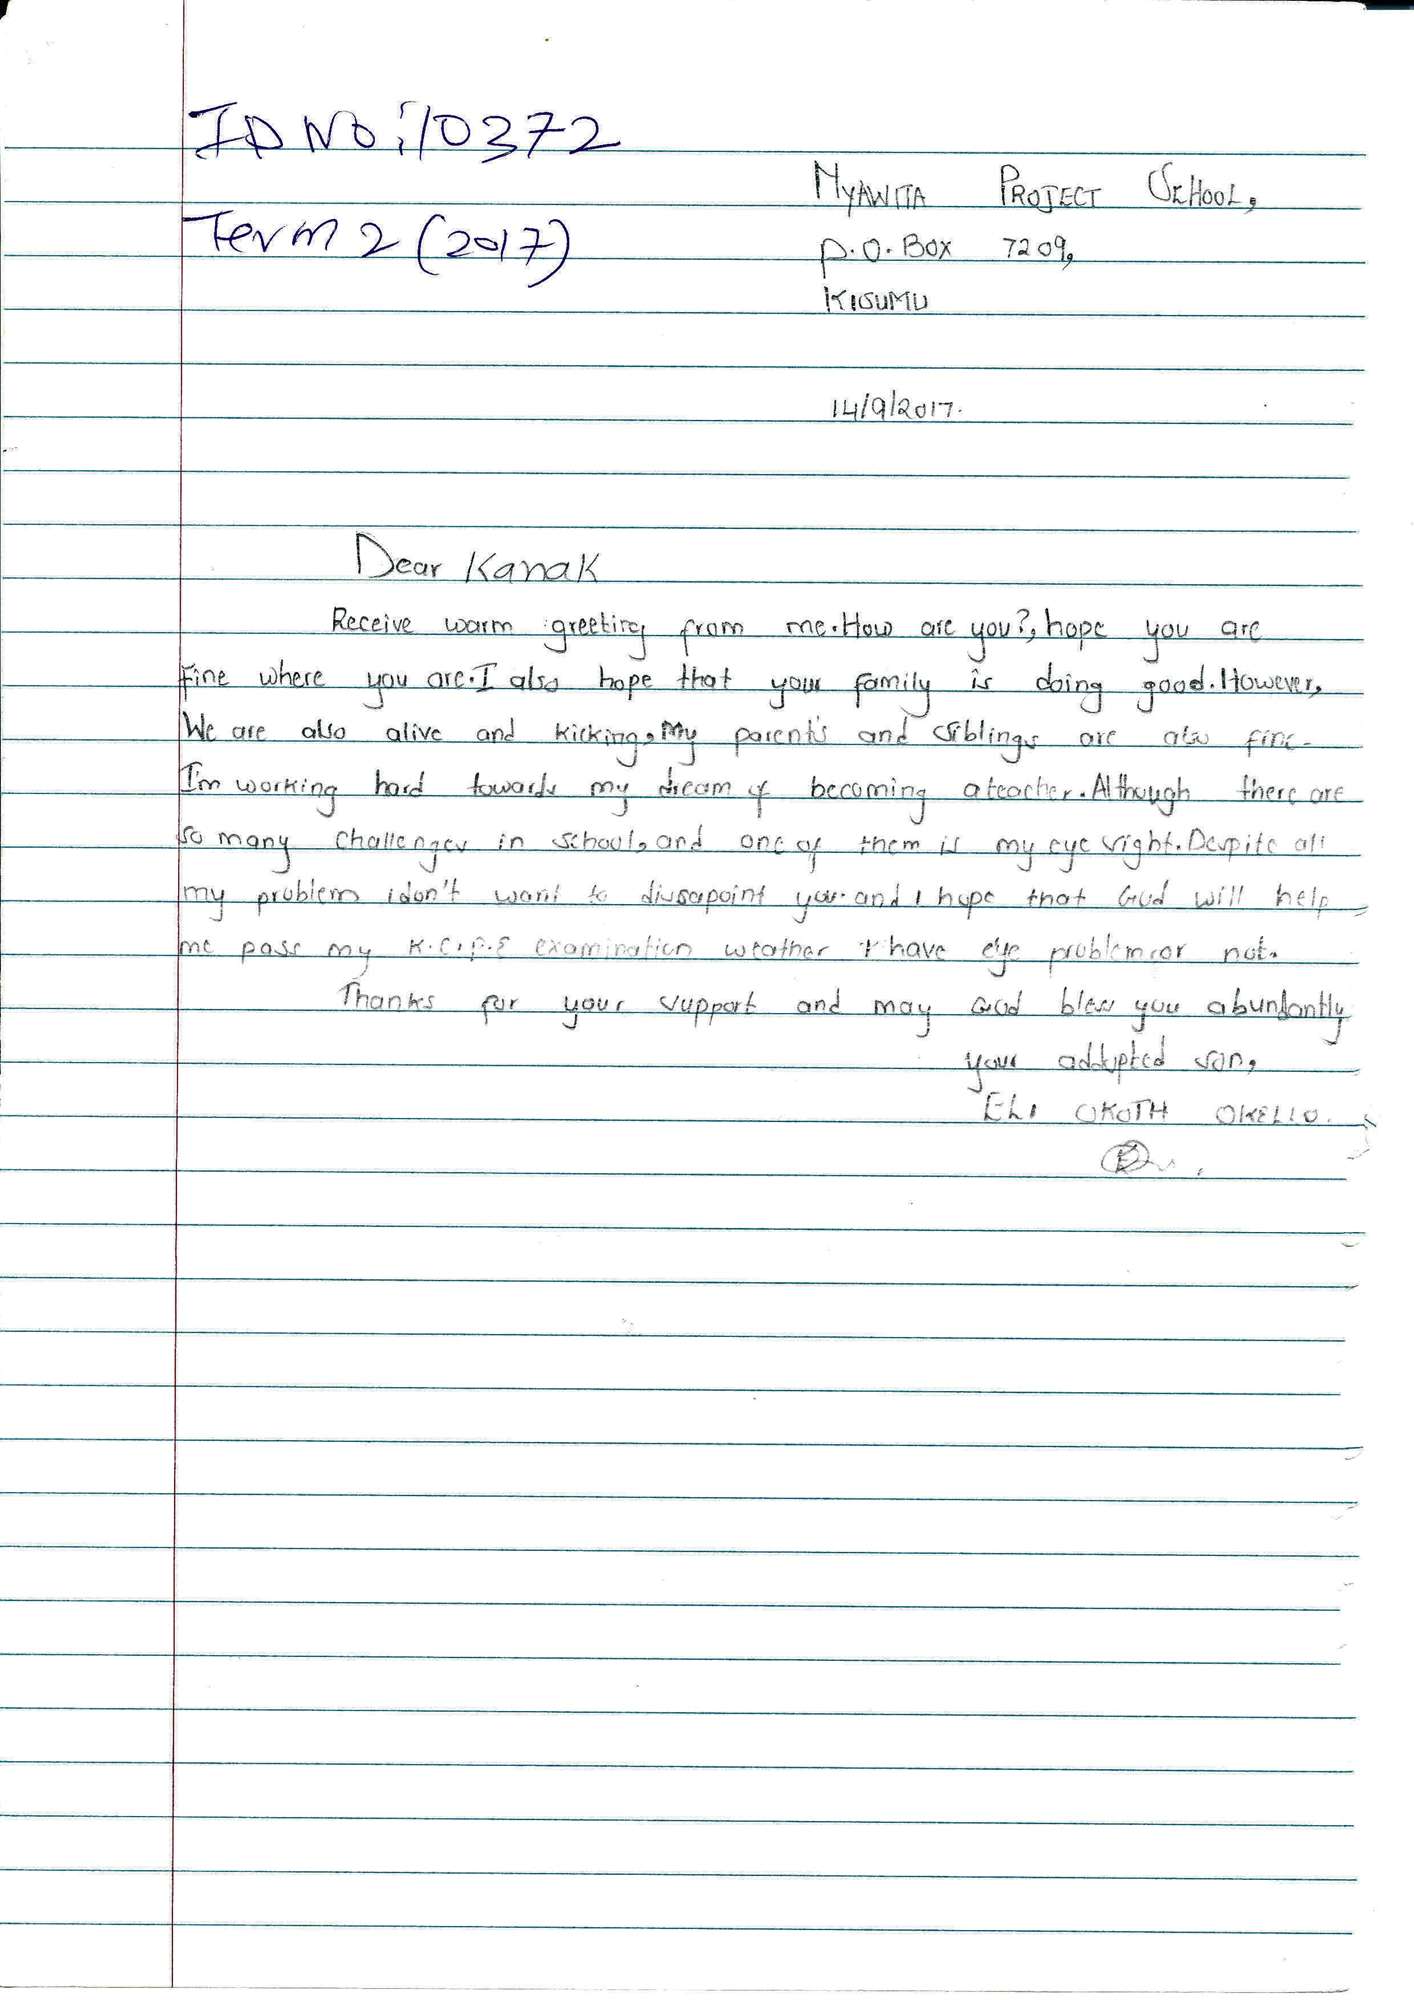 ID No: 10372
NYAWITA PROJECT SCHOOL,
Term 2 (2017)
P.O. BOX 7209,
KISUMU
14/9/2017.
Dear Kanak
Receive warm greeting from me. How are you?, hope you are
fine where you are. I also hope that your family is doing good. However,
We are also alive and kicking, My parent's and siblings are also fine.
I'm working hard towards my dream of becoming a teacher. Although there are
so many challenges in school, and one of them is my eye sight. Despite all
my problem i don't want to dissapoint you and I hope that God will help
me pass my K.C.P.E examination weather I have eye problem or not.
Thanks for your support and may God bless you abundantly
your addopted son,
ELI OKOTH OKELLO.